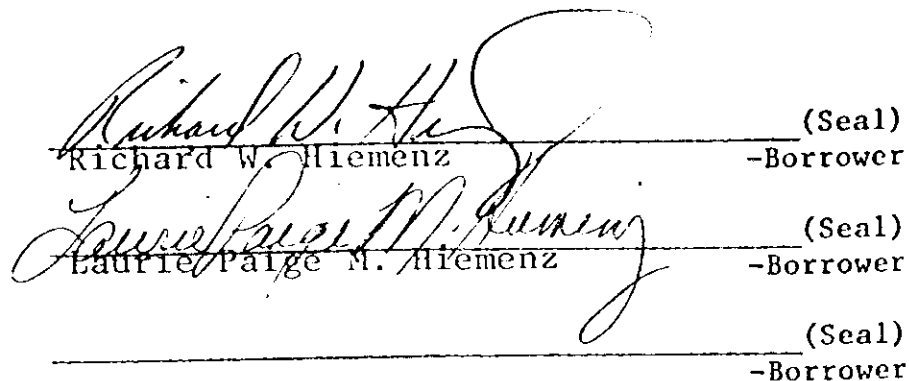 Richard W. Hi (Seal)
Richard W. Hiemenz -Borrower
Laurie Paige M. Hiemenz (Seal)
Laurie Paige M. Hiemenz -Borrower
(Seal)
-Borrower